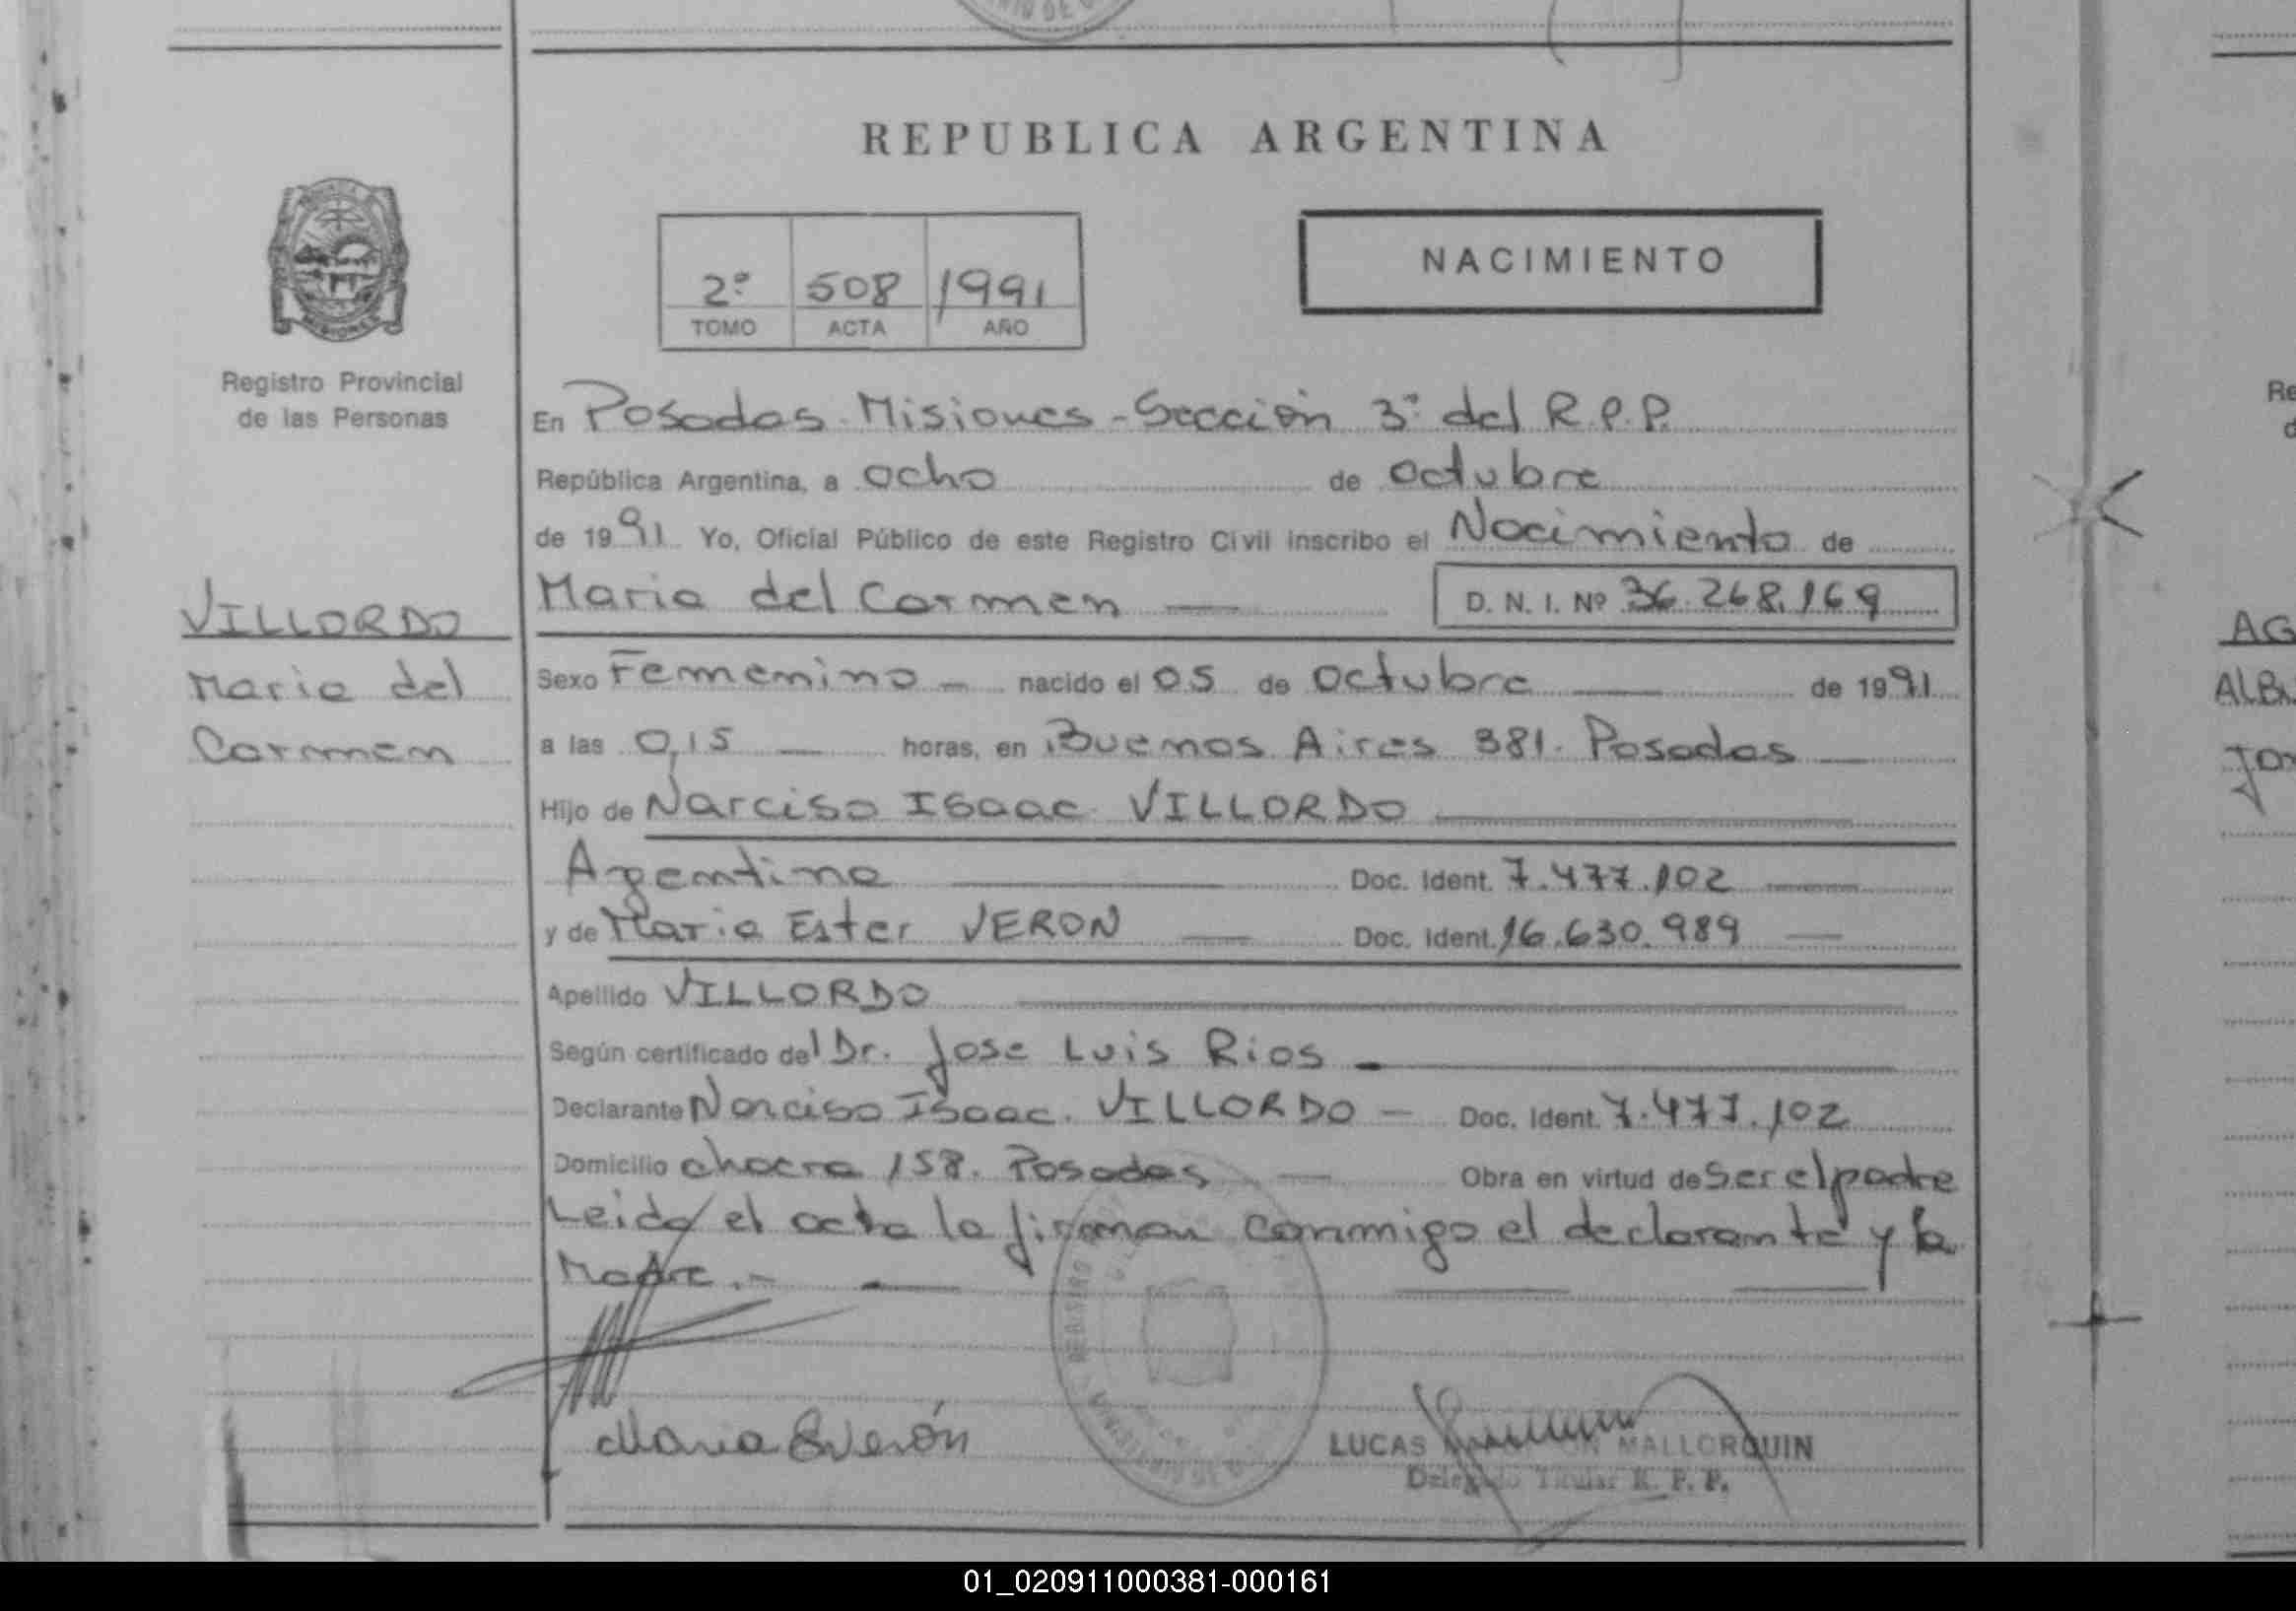 REPUBLICA ARGENTINA
NACIMIENTO
2º 508 1991
TOMO ACTA AÑO
MISIONES
Registro Provincial
de las Personas
En Posadas - Misiones - Sección 3º del R.P.P.
República Argentina, a ocho de octubre
de 1991 Yo, Oficial Público de este Registro Civil inscribo el Nacimiento de
Maria del Carmen — D. N. I. Nº 36.268.169
VILLORDO
Maria del
Carmen
Sexo Femenino — nacido el 05 de Octubre — de 1991
a las 0,15 — horas, en Buenos Aires 381. Posadas —
Hijo de Narciso Isaac VILLORDO —
Argentina — Doc. Ident. 7.477.102 —
y de Maria Ester VERON — Doc. Ident. 16.630.989 —
Apellido VILLORDO —
Según certificado del Dr. Jose Luis Rios —
Declarante Narciso Isaac. VILLORDO — Doc. Ident. 7.477.102
Domicilio chacra 158. Posadas — Obra en virtud de Ser el padre
Leido el acta la firman conmigo el declarante y la
Madre.— —
Maria E Verón
LUCAS MALLORQUIN
Delegado Titular R. P. P.
REGISTRO
MINISTERIO DE
AG
ALB
Jo
Re
d
01_020911000381-000161